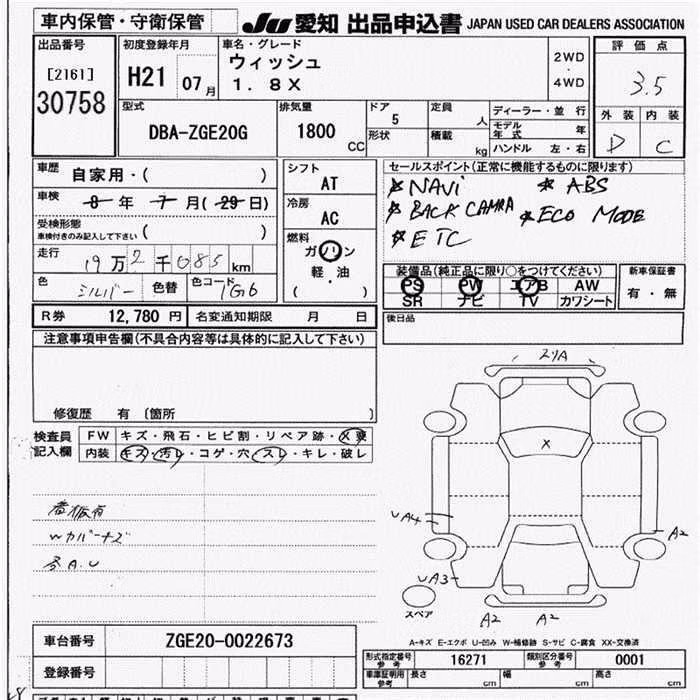 車内保管・守衛保管
JU 愛知 出品申込書 JAPAN USED CAR DEALERS ASSOCIATION
出品番号
[2161]
30758
初度登録年月
H21 07月
車名・グレード
ウィッシュ
1.8X
2WD
・
4WD
評価点
3.5
外装 内装
D C
型式
DBA-ZGE20G
排気量
1800 CC
ドア
5
形状
定員
人
積載
kg
ディーラー・並行
モデル年式 年
ハンドル 左・右
車歴 自家用・( )
車検 8 年 7 月(29日)
受検形態
車検付きのみ記入して下さい ( )
走行
19万2千085 km
色 シルバー 色替 色コード 1G6
シフト
AT
冷房
AC
燃料
ガソリン
軽・油
( )
セールスポイント(正常に機能するものに限ります)
NAVi ABS
BACK CAMRA ECO MODE
ETC
装備品(純正品に限り○をつけてください)
PS PW エアB AW
SR ナビ TV カワシート
新車保証書
有・無
R券 12,780 円 名変通知期限 月 日
後日品
注意事項申告欄(不具合内容等は具体的に記入して下さい)
修復歴 有 〔箇所 〕
検査員記入欄
FW キズ・飛石・ヒビ割・リペア跡・X要
内装 キズ・汚レ・コゲ・穴・スレ・キレ・破レ
看板有
Wカバーキズ
各A.U
X
UA4
A2
UA3
A2 A2
スペア
A-キズ E-エクボ U-凹み W-補修跡 S-サビ C-腐食 XX-交換済
車台番号 ZGE20-0022673
登録番号
型式指定番号 参考 16271 類別区分番号 参考 0001
車庫証明用 参考 長さ cm 幅 cm 高さ cm